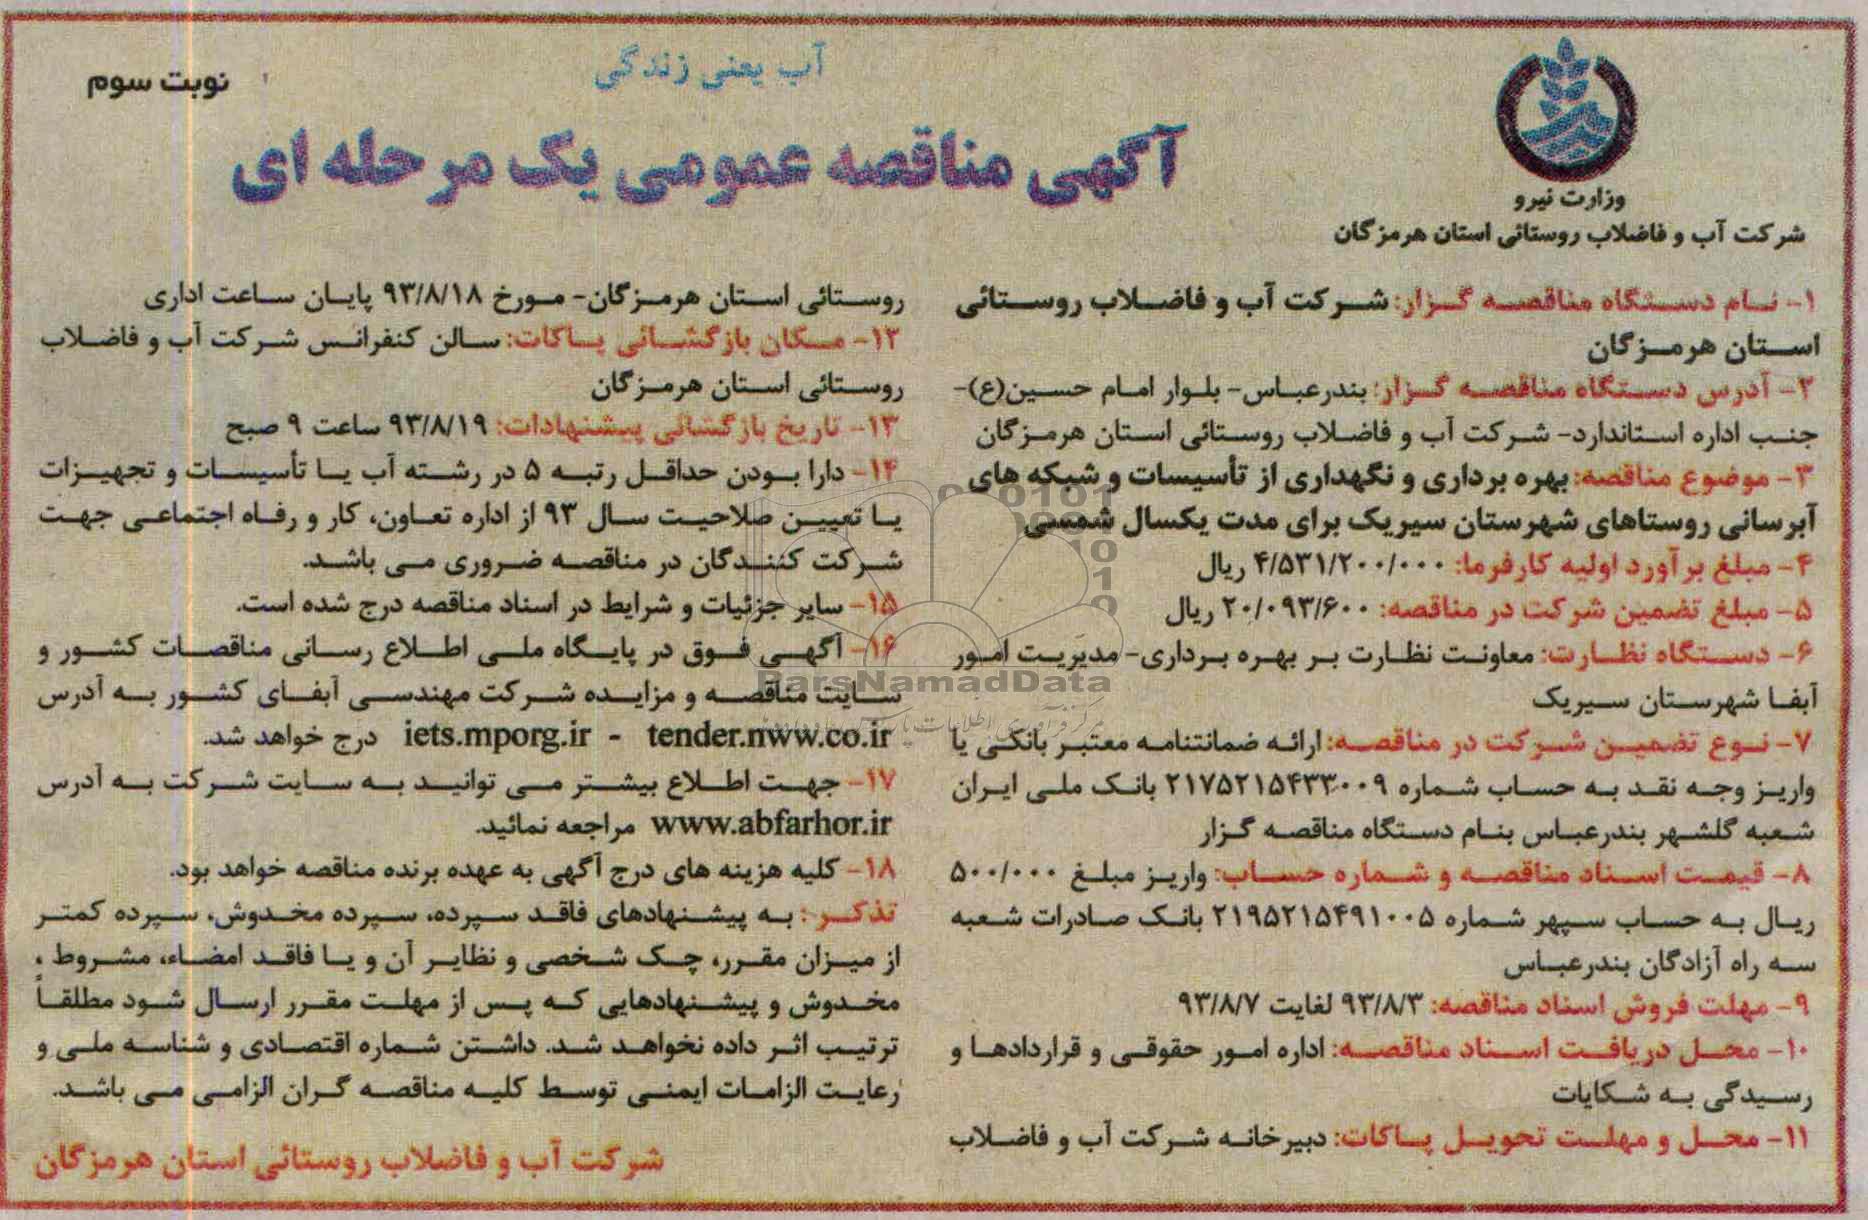 آب یعنی زندگی
نوبت سوم
آگهی مناقصه عمومی یک مرحله ای
وزارت نیرو
شرکت آب و فاضلاب روستائی استان هرمزگان
۱- نام دستگاه مناقصه گزار: شرکت آب و فاضلاب روستائی
استان هرمزگان
۲- آدرس دستگاه مناقصه گزار: بندرعباس- بلوار امام حسین(ع)-
جنب اداره استاندارد- شرکت آب و فاضلاب روستائی استان هرمزگان
۳- موضوع مناقصه: بهره برداری و نگهداری از تأسیسات و شبکه های
آبرسانی روستاهای شهرستان سیریک برای مدت یکسال شمسی
۴- مبلغ برآورد اولیه کارفرما: ۴/۵۳۱/۲۰۰/۰۰۰ ریال
۵- مبلغ تضمین شرکت در مناقصه: ۲۰/۰۹۳/۶۰۰ ریال
۶- دستگاه نظارت: معاونت نظارت بر بهره برداری- مدیریت امور
آبفا شهرستان سیریک
۷- نوع تضمین شرکت در مناقصه: ارائه ضمانتنامه معتبر بانکی یا
واریز وجه نقد به حساب شماره ۲۱۷۵۲۱۵۴۳۳۰۰۹ بانک ملی ایران
شعبه گلشهر بندرعباس بنام دستگاه مناقصه گزار
۸- قیمت اسناد مناقصه و شماره حساب: واریز مبلغ ۵۰۰/۰۰۰
ریال به حساب سپهر شماره ۲۱۹۵۲۱۵۴۹۱۰۰۵ بانک صادرات شعبه
سه راه آزادگان بندرعباس
۹- مهلت فروش اسناد مناقصه: ۹۳/۸/۳ لغایت ۹۳/۸/۷
۱۰- محل دریافت اسناد مناقصه: اداره امور حقوقی و قراردادها و
رسیدگی به شکایات
۱۱- محل و مهلت تحویل پاکات: دبیرخانه شرکت آب و فاضلاب
روستائی استان هرمزگان- مورخ ۹۳/۸/۱۸ پایان ساعت اداری
۱۲- مکان بازگشائی پاکات: سالن کنفرانس شرکت آب و فاضلاب
روستائی استان هرمزگان
۱۳- تاریخ بازگشائی پیشنهادات: ۹۳/۸/۱۹ ساعت ۹ صبح
۱۴- دارا بودن حداقل رتبه ۵ در رشته آب یا تأسیسات و تجهیزات
یا تعیین صلاحیت سال ۹۳ از اداره تعاون، کار و رفاه اجتماعی جهت
شرکت کنندگان در مناقصه ضروری می باشد.
۱۵- سایر جزئیات و شرایط در اسناد مناقصه درج شده است.
۱۶- آگهی فوق در پایگاه ملی اطلاع رسانی مناقصات کشور و
سایت مناقصه و مزایده شرکت مهندسی آبفای کشور به آدرس
iets.mporg.ir - tender.nww.co.ir درج خواهد شد.
۱۷- جهت اطلاع بیشتر می توانید به سایت شرکت به آدرس
www.abfarhor.ir مراجعه نمائید.
۱۸- کلیه هزینه های درج آگهی به عهده برنده مناقصه خواهد بود.
تذکر: به پیشنهادهای فاقد سپرده، سپرده مخدوش، سپرده کمتر
از میزان مقرر، چک شخصی و نظایر آن و یا فاقد امضاء، مشروط ،
مخدوش و پیشنهادهایی که پس از مهلت مقرر ارسال شود مطلقاً
ترتیب اثر داده نخواهد شد. داشتن شماره اقتصادی و شناسه ملی و
رعایت الزامات ایمنی توسط کلیه مناقصه گران الزامی می باشد.
شرکت آب و فاضلاب روستائی استان هرمزگان
ParsNamadData